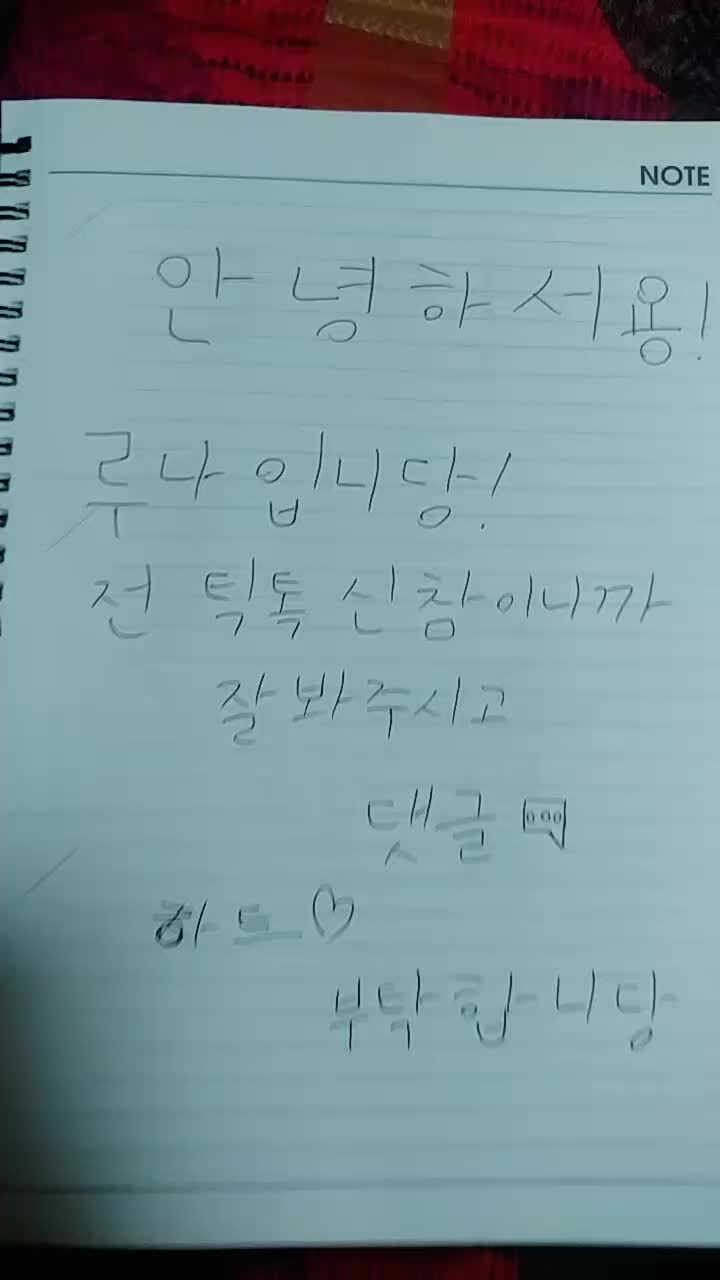 NOTE
안녕하서용!
루나입니당!
전 틱톡 신참이니까
잘봐주시고
댓글
하트♡
부탁합니당